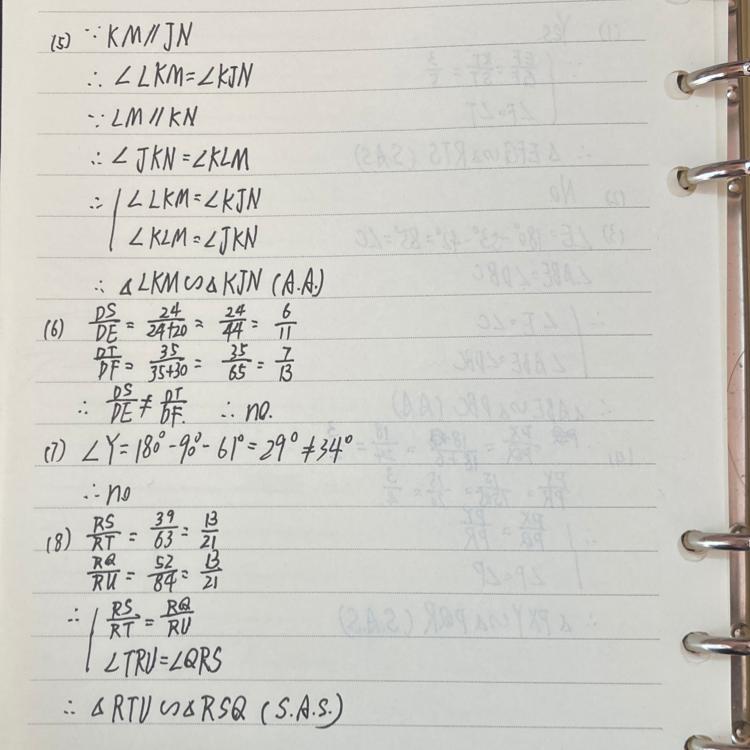 (5) ∵ KM∥JN
∴ ∠LKM=∠KJN
∵ LM∥KN
∴ ∠JKN=∠KLM
∴ ∠LKM=∠KJN
∠KLM=∠JKN
∴ △LKM∽△KJN (A.A.)
(6) DS/DE = 24/24+20 = 24/44 = 6/11
DT/DF = 35/35+30 = 35/65 = 7/13
∴ DS/DE ≠ DT/DF. ∴ no.
(7) ∠Y=180°-90°-61°=29°≠34°
∴ no
(8) RS/RT = 39/63 = 13/21
RQ/RU = 52/84 = 13/21
∴ RS/RT = RQ/RU
∠TRU=∠QRS
∴ △RTU∽△RSQ (S.A.S.)